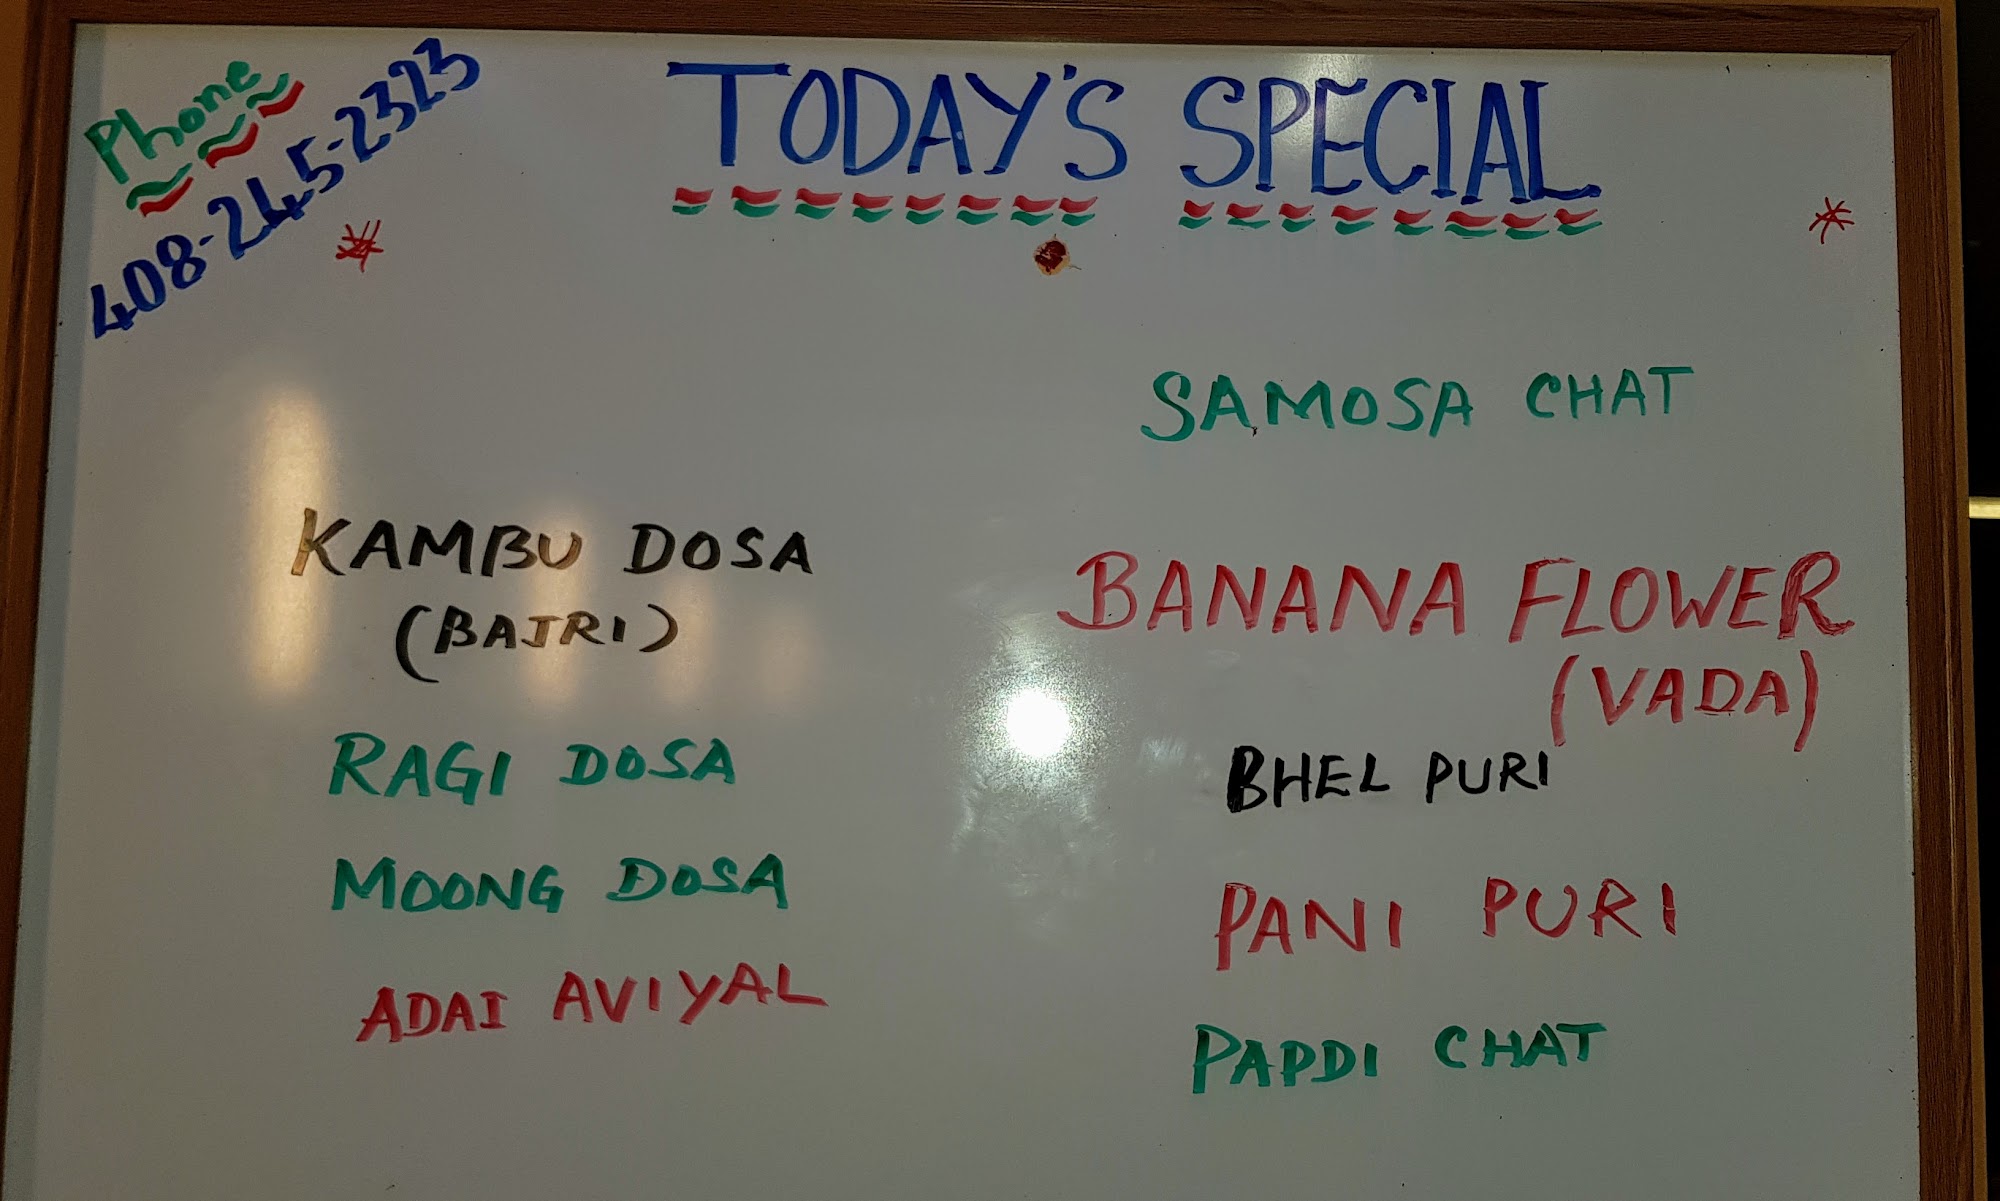 Phone
408-245-2323
TODAY'S SPECIAL
KAMBU DOSA
(BAJRI)
RAGI DOSA
MOONG DOSA
ADAI AVIYAL
SAMOSA CHAT
BANANA FLOWER
(VADA)
BHEL PURI
PANI PURI
PAPDI CHAT